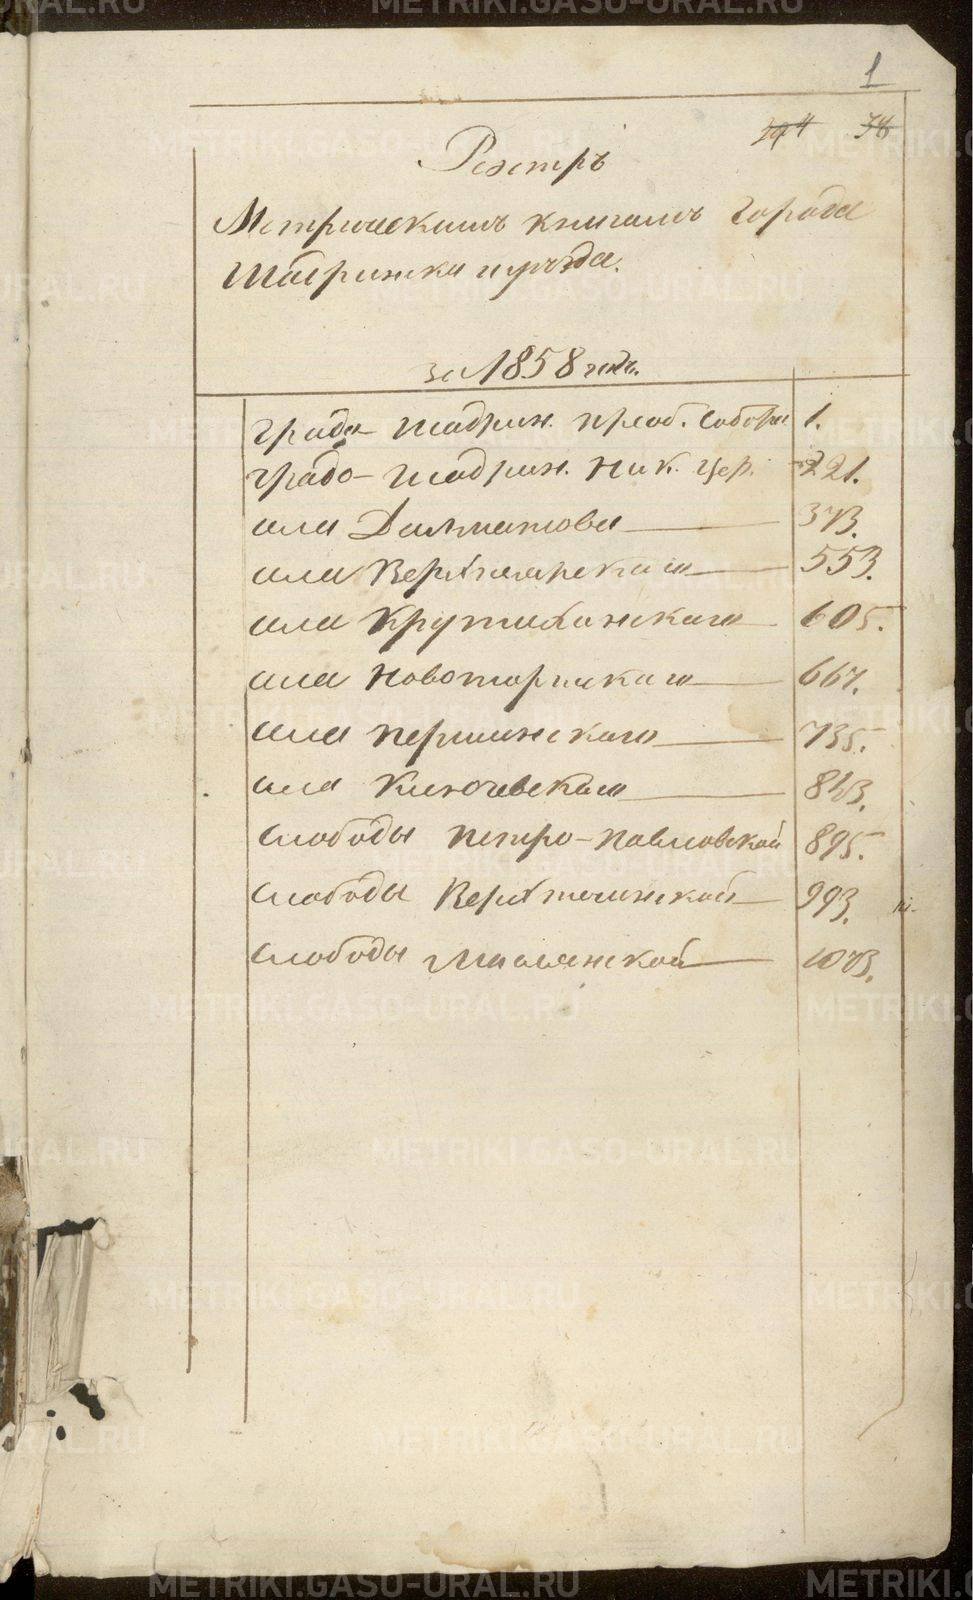 1
Реэстръ
Метрическимъ книгамъ города
Шадринска и уѣзда.
за 1858 годъ.
Градо-Шадрин. Преоб. Собора 1.
Градо-Шадрин. Ник. Цер. 221.
села Далматова 373.
села Верхъярскаго 553.
села Крутихинскаго 605.
села Новоторжскаго 667.
села Першинскаго 735.
села Ключевскаго
Слободы Петро-Павловской 895.
Слободы Верхтеченской 993.
Слободы Маслянской 1073.
METRIKI.GASO-URAL.RU